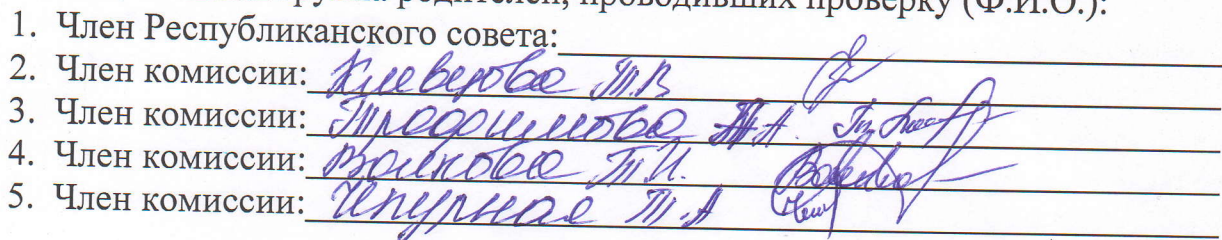 родителей, проводивших проверку (Ф.И.О.):
1. Член Республиканского совета:
2. Член комиссии: Клеверова Т.В
3. Член комиссии:
4. Член комиссии: Волкова Т.И.
5. Член комиссии: Чепурная Т.А